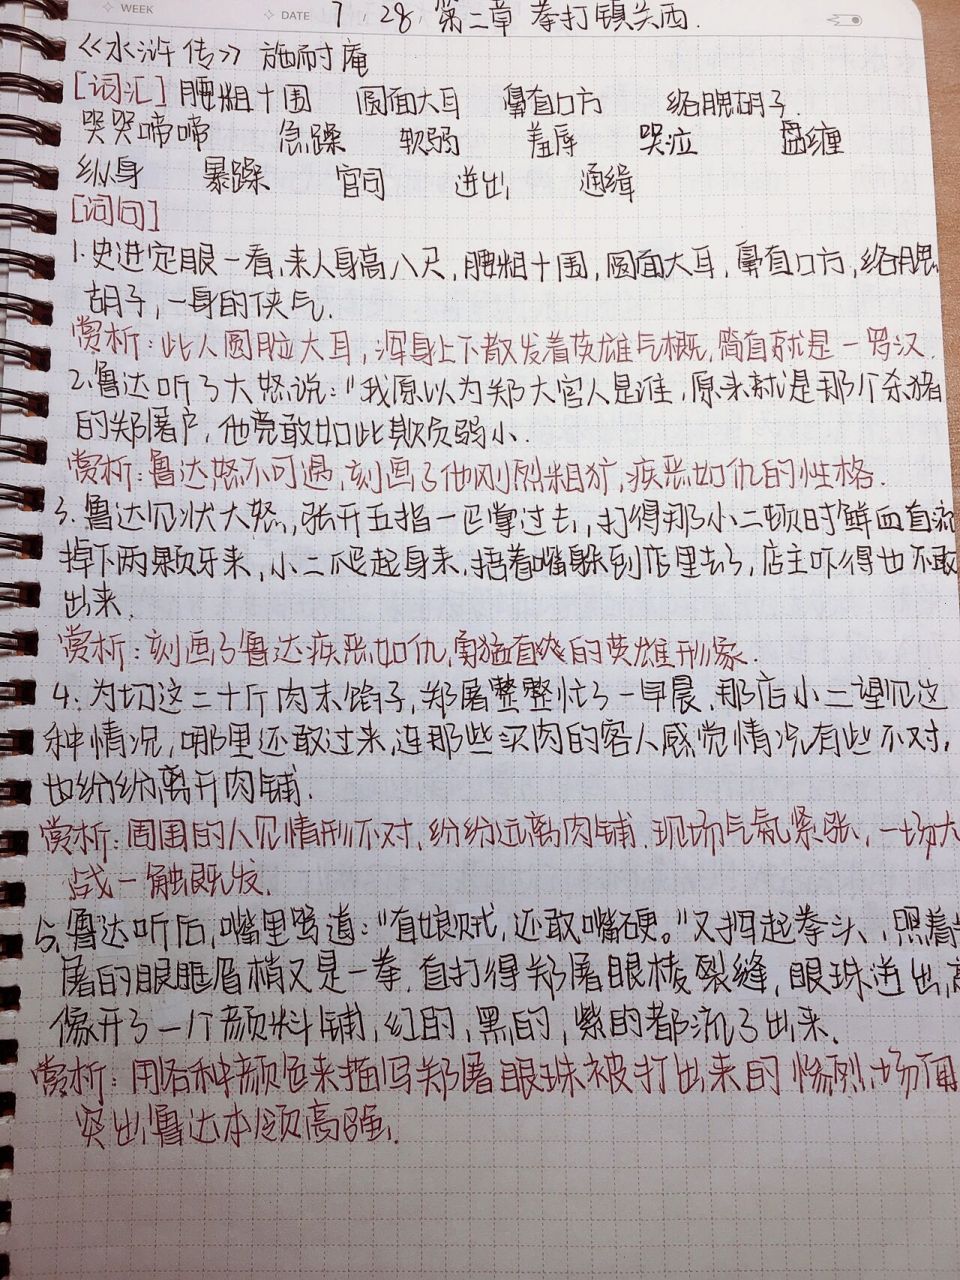 WEEK DATE 7 . 28 第二章 拳打镇关西.
《水浒传》 施耐庵
[词汇] 腰粗十围 圆面大耳 鼻直口方 络腮胡子.
哭哭啼啼 急躁 软弱 羞辱 哭泣 盘缠
纵身 暴躁 官司 迸出 通缉
[词句]
1.史进定眼一看,来人身高八尺,腰粗十围,圆面大耳,鼻直口方,络腮
胡子,一身的侠气.
赏析:此人圆脸大耳,浑身上下散发着英雄气概,简直就是一罗汉.
2.鲁达听了大怒说:"我原以为郑大官人是谁,原来就是那个杀猪
的郑屠户,他竟敢如此欺负弱小.
赏析:鲁达怒不可遏,刻画了他刚烈粗犷,疾恶如仇的性格.
3.鲁达见状大怒,张开五指一巴掌过去,打得那小二顿时鲜血直流
掉下两颗牙来,小二爬起身来,捂着嘴躲到店里去了,店主吓得也不敢
出来.
赏析:刻画了鲁达疾恶如仇,勇猛直爽的英雄形象.
4.为切这二十斤肉末馅子,郑屠整整忙了一早晨.那店小二望见这
种情况,哪里还敢过来,连那些买肉的客人感觉情况有些不对,
也纷纷离开肉铺.
赏析:周围的人见情形不对,纷纷远离肉铺.现场气氛紧张,一场大
战一触既发.
5.鲁达听后,嘴里骂道:"直娘贼,还敢嘴硬。"又挥起拳头,照着
屠的眼眶眉梢又是一拳.直打得郑屠眼棱裂缝,眼珠迸出,
像开了一个颜料铺,红的,黑的,紫的都流了出来.
赏析:用各种颜色来描写郑屠眼珠被打出来的惨烈场面
突出鲁达本领高强.